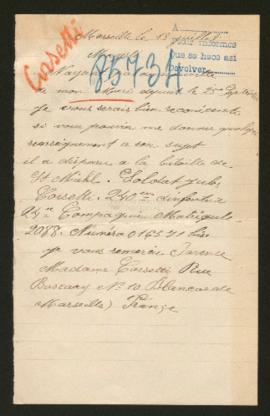 Marseille le 13 juillet
Casetti
85734
A
para informes
que se hace así
Devolver
de mon Mari depuis le 25 Septembre
Je vous serais bien reconnaissante
si vous pouviez me donner quelque
renseignement a son sujet
il a disparu a la bataille de
St Mihiel. Soldat Jules
Cossetti. 240em d'infanterie
24m Compagnie Matricule
2088. Numéro 016571 bis
je vous remercie d'avance
Madame Cossetti Rue
Boscary No 10 Blancarde
Marseille France